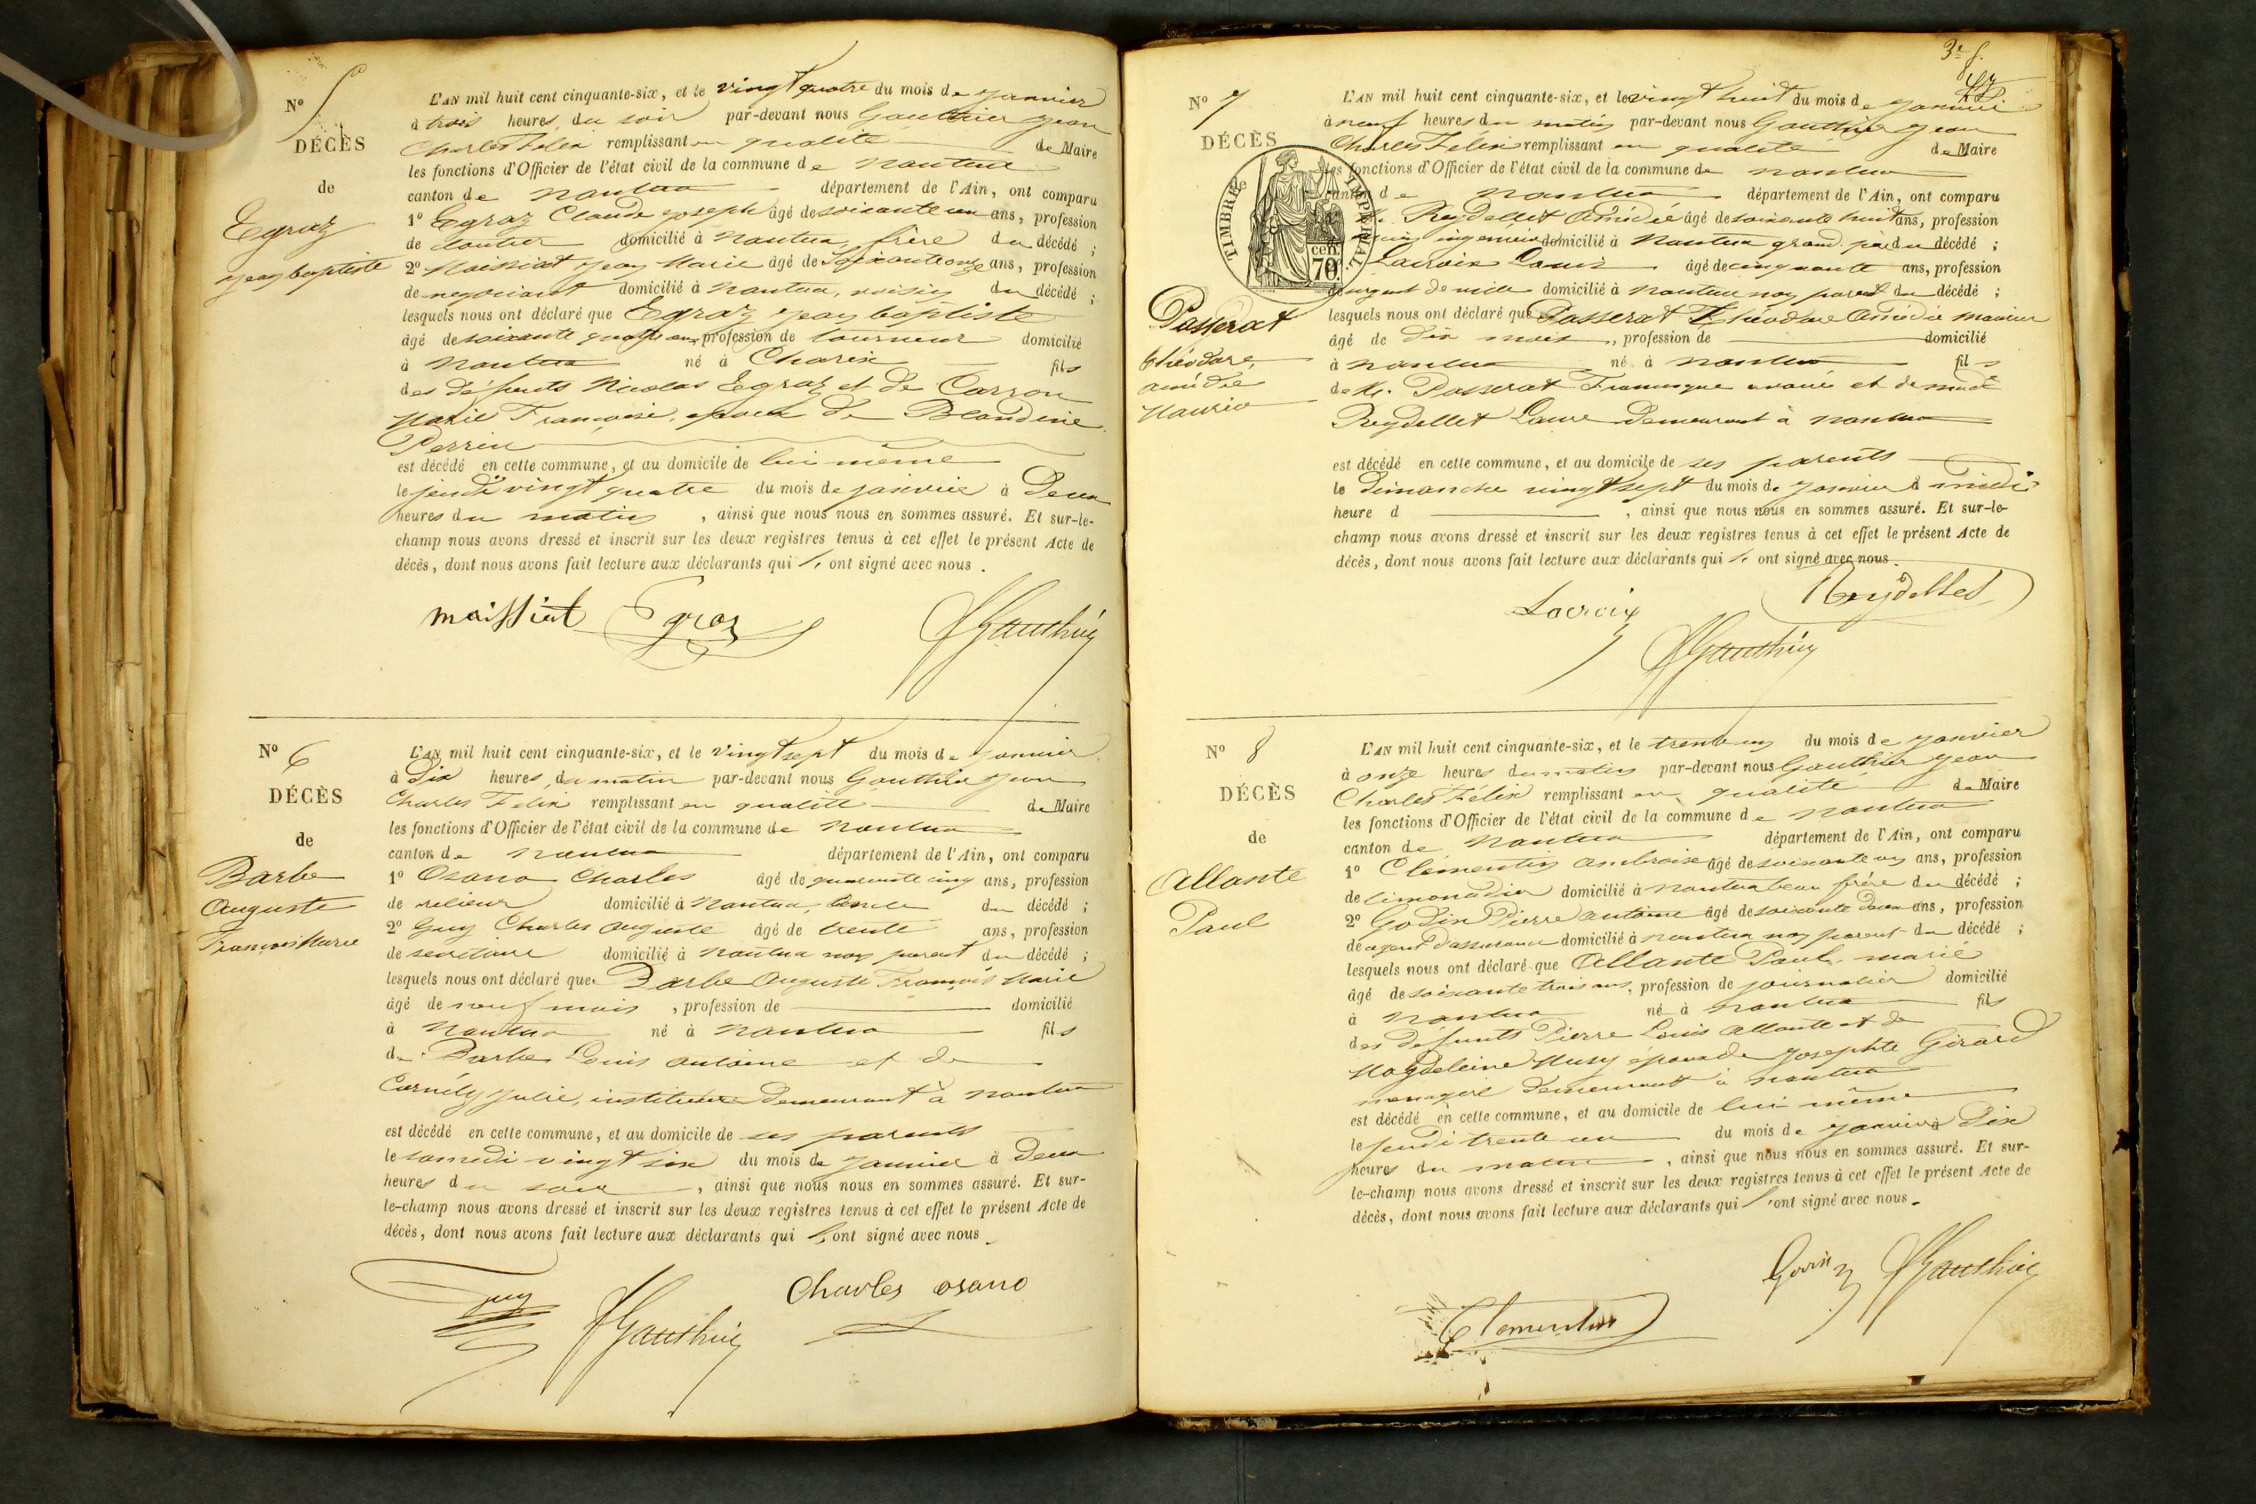 N° 5
DÉCÈS
de
Egraz
jean baptiste
L'AN mil huit cent cinquante-six, et le vingt quatre du mois de janvier
à trois heures du soir par-devant nous Gauthier jean
Charles Félix remplissant en qualité de Maire
les fonctions d'Officier de l'état civil de la commune de nantua
canton de nantua département de l'Ain, ont comparu
1° Egraz Claude joseph âgé de soixante un ans, profession
de cloutier domicilié à nantua, frère du décédé ;
2° Maissiat jean Marie âgé de soixante onze ans, profession
de negociant domicilié à nantua, voisin du décédé ;
lesquels nous ont déclaré que Egraz jean baptiste
âgé de soixante quatre ans, profession de tourneur domicilié
à nantua né à Charix fils
des défunts Nicolas Egraz et de Carron
Marie Françoise, époux de Blandine
Perrin
est décédé en cette commune, et au domicile de lui même
le jeudi vingt quatre du mois de janvier à Deux
heures du matin, ainsi que nous nous en sommes assuré. Et sur-le-
champ nous avons dressé et inscrit sur les deux registres tenus à cet effet le présent Acte de
décès, dont nous avons fait lecture aux déclarants qui ont signé avec nous.
maissiat Egraz Gauthier
N° 6
DÉCÈS
de
Barbe
Auguste
François Marie
L'AN mil huit cent cinquante-six, et le vingt sept du mois de janvier
à Dix heures du matin par-devant nous Gauthier jean
Charles Félix remplissant en qualité de Maire
les fonctions d'Officier de l'état civil de la commune de nantua
canton de nantua département de l'Ain, ont comparu
1° Osano Charles âgé de quarante cinq ans, profession
de relieur domicilié à nantua, oncle du décédé ;
2° Guy Charles auguste âgé de trente ans, profession
de secrétaire domicilié à nantua non parent du décédé ;
lesquels nous ont déclaré que Barbe Auguste François Marie
âgé de neuf mois, profession de domicilié
à nantua né à nantua fils
de Barbe Louis antoine et de
Cornély julie, demeurant à nantua
est décédé en cette commune, et au domicile de ses parents
le samedi vingt six du mois de janvier à Deux
heures du soir, ainsi que nous nous en sommes assuré. Et sur-
le-champ nous avons dressé et inscrit sur les deux registres tenus à cet effet le présent Acte de
décès, dont nous avons fait lecture aux déclarants qui ont signé avec nous
Guy Gauthier Charles osano
3e f.
N° 7
DÉCÈS
TIMBRE IMPÉRIAL.
cen. 70.
Passerat
théodore,
amédée
Maurice
L'AN mil huit cent cinquante-six, et le vingt huit du mois de janvier
à neuf heures du matin par-devant nous Gauthier jean
Charles Félix remplissant en qualité de Maire
les fonctions d'Officier de l'état civil de la commune de nantua
canton de nantua département de l'Ain, ont comparu
Reydellet Amédée âgé de soixante huit ans, profession
ingénieur domicilié à nantua grand père du décédé ;
Lacroix Louis âgé de cinquante ans, profession
de sergent de ville domicilié à nantua non parent du décédé ;
lesquels nous ont déclaré que Passerat Théodore Amédée maurice
âgé de dix mois, profession de domicilié
à nantua né à nantua fils
de M. Passerat Francisque avoué et de made
Reydellet Laure demeurant à nantua
est décédé en cette commune, et au domicile de ses parents
le Dimanche vingt sept du mois de janvier à midi
heure d , ainsi que nous nous en sommes assuré. Et sur-le-
champ nous avons dressé et inscrit sur les deux registres tenus à cet effet le présent Acte de
décès, dont nous avons fait lecture aux déclarants qui ont signé avec nous.
Lacroix Reydellet
Gauthier
N° 8
DÉCÈS
de
Allante
Paul
L'AN mil huit cent cinquante-six, et le trente un du mois de janvier
à onze heures du matin par-devant nous Gauthier jean
Charles Félix remplissant en qualité de Maire
les fonctions d'Officier de l'état civil de la commune de nantua
canton de nantua département de l'Ain, ont comparu
1° Clémentin ambroise âgé de soixante un ans, profession
de limonadier domicilié à nantua beau frère du décédé ;
2° Godin Pierre antoine âgé de soixante deux ans, profession
de agent d'assurance domicilié à nantua non parent du décédé ;
lesquels nous ont déclaré que Allante Paul, marié
âgé de soixante trois ans, profession de journalier domicilié
à nantua né à nantua fils
des défunts Pierre Louis Allante et de
Magdeleine époux de josephte Girard
menagère demeurant à nantua
est décédé en cette commune, et au domicile de lui même
le jeudi trente un du mois de janvier à Dix
heures du matin, ainsi que nous nous en sommes assuré. Et sur-
le-champ nous avons dressé et inscrit sur les deux registres tenus à cet effet le présent Acte de
décès, dont nous avons fait lecture aux déclarants qui ont signé avec nous.
Clementin Gauthier